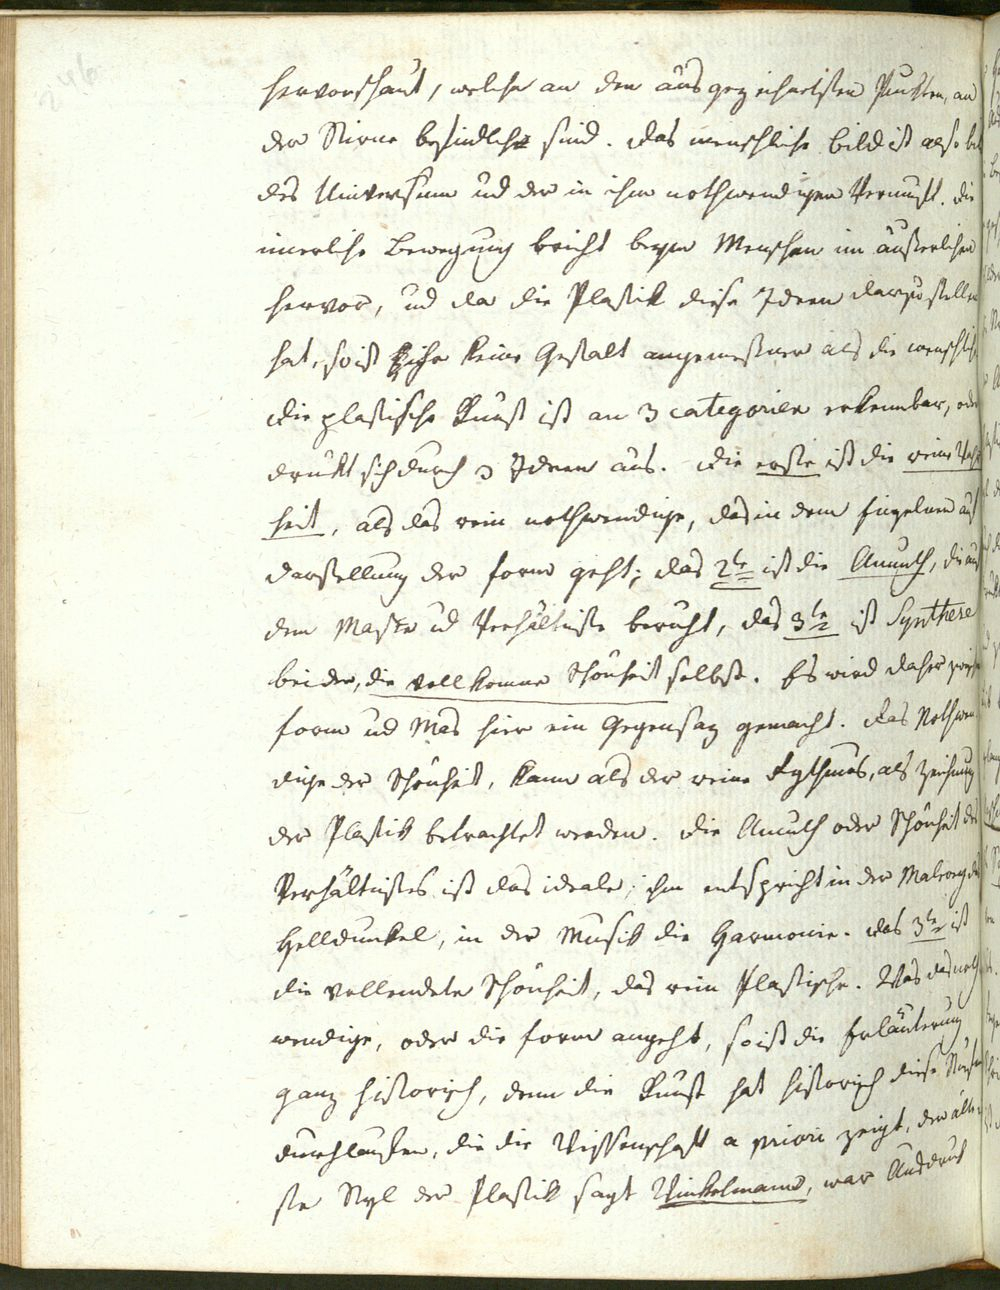 246
hervorschaut, welche an den ausgezeichnetsten Punkten, an
der Stirne befindlich sind. Das menschliche Bild ist also
des Universum ud der in ihm nothwendigen Vernunft. Die
innerliche Bewegung bricht beym Menschen im äußerlichen
hervor, ud da die Plastik diese Ideen darzustellen
hat, so ist ihr keine Gestalt angemeßner als die menschliche
Die plastische Kunst ist an 3 categorien erkennbar, oder
drukt sich durch 3 Ideen aus. Die erste ist die reine
heit, als das rein nothwendige, das in dem einzelnen auf
darstellung der form geht; das 2te ist die Anmuth, die aus
dem Maße ud Verhältniße beruht, das 3te ist Synthese
beider, die vollkomne Schönheit selbst. Es wird daher zwischen
form ud Mas hier ein Gegensaz gemacht. Das Nothwen
dige der Schönheit, kann als der reine Rythmus, als Zeichnung
der Plastik betrachtet werden. Die Anmuth oder Schönheit des
Verhältnißes ist das ideale; ihm entspricht in der Malerey das
Helldunkel, in der Musik die Harmonie. das 3te ist
die vollendete Schönheit, das rein Plastische. Was das noth
wendige, oder die form angeht, so ist die Erläuterung
ganz historisch, denn die Kunst hat historisch diese Stufen
durchlaufen, die die Wissenschaft a priori zeigt, der älte
ste Styl der Plastik sagt Winkelmann, war Ausdruck